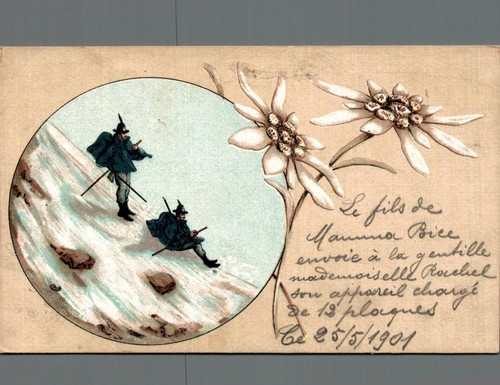 Le fils de
Mamma Bice
envoie à la gentille
mademoiselle Rachel
son appareil chargé
de 12 plaques
Ce 25/5/1901